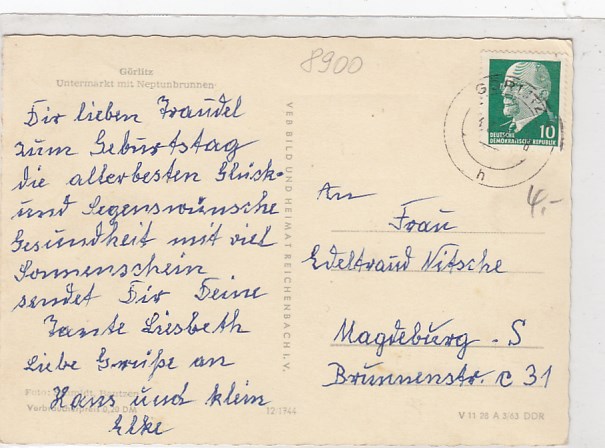 8900
Görlitz
Untermarkt mit Neptunbrunnen
Dir lieben Traudel
zum Geburtstag
die allerbesten Glück-
und Segenswünsche
Gesundheit mit viel
Sonnenschein
sendet Dir Deine
Tante Liesbeth
Liebe Grüße an
Hans und klein
Elke
Verbraucherpreis 0,20 DM
12 1944
VEB BILD UND HEIMAT REICHENBACH I. V.
GÖRLITZ
h
10
DEUTSCHE
DEMOKRATISCHE REPUBLIK
4,-
An
Frau
Edeltraud Nitsche
Magdeburg - S
Brunnenstr. c 31
V 11 28 A 3/63 DDR